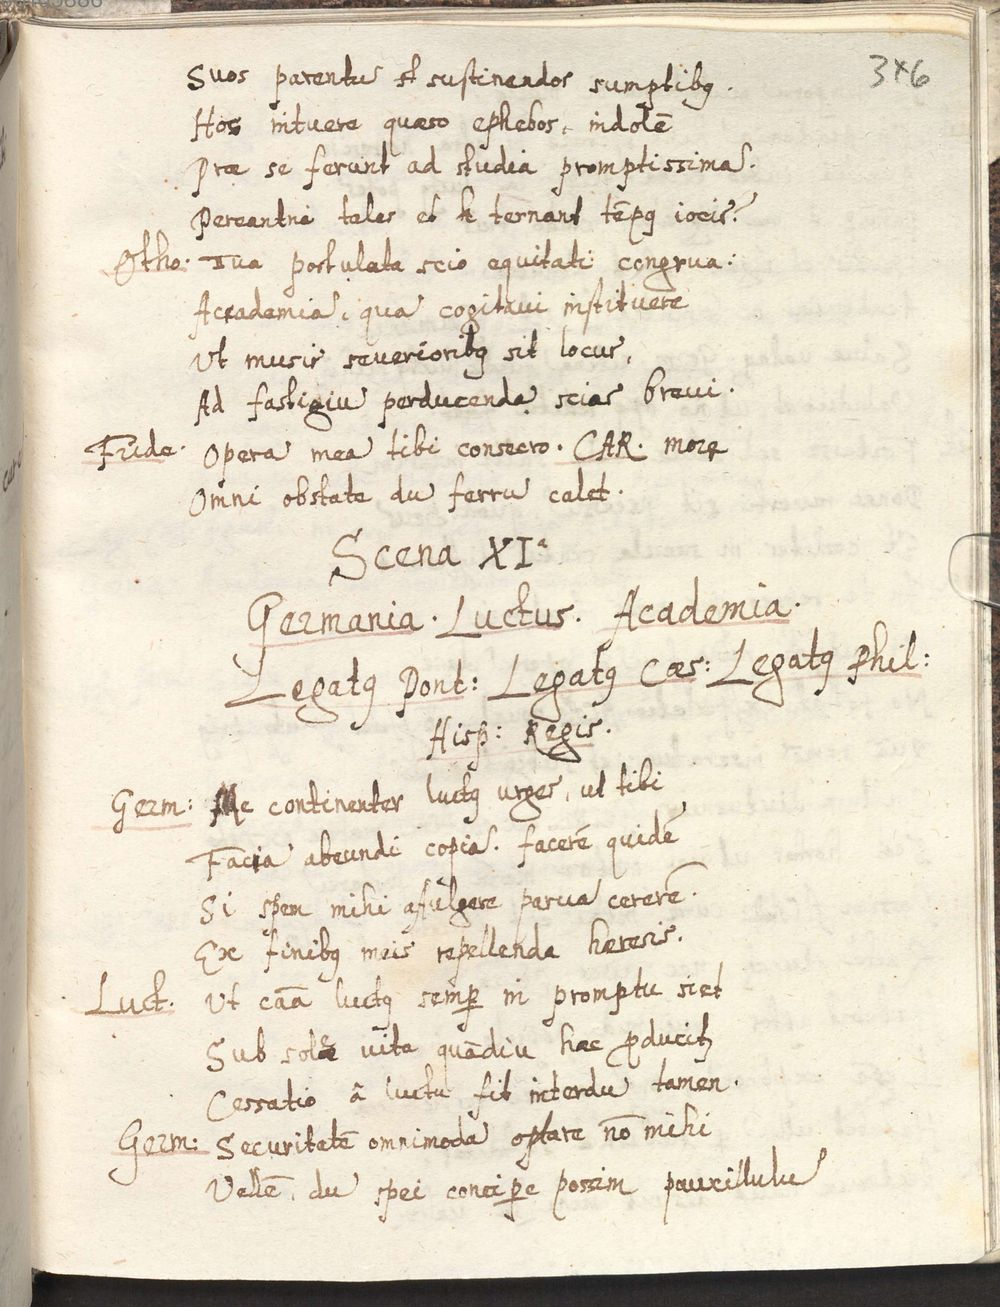 376
Suos parentū et sustinendos sumptibꝯ.
Hos intuere quæso ephebos, indolē
Præ se ferunt ad studia promptissimā.
Pereantne tales et hi ternant tēpꝯ iocis?
Otho. Tua postulata scio equitati congrua.
Accademiā, quā cogitavi instituere
Ut musis severioribꝯ sit locus,
Ad fastigiū perducendā scias brevi.
Fride. Operā meā tibi consecro. CAR. moræ
Omni obstate dū ferrū calet.
Scena XIª
Germania. Luctus. Academia.
Legatꝯ Pont: Legatꝯ Cæs: Legatꝯ Phil:
Hisp: Regis.
Germ: Me continenter luctꝯ urges, ut tibi
Faciā abeundi copiā. facerē quidē
Si spem mihi afulgere parvā cererē.
Ex finibꝯ meis repellenda hæresis.
Luct. Ut cāā luctꝯ semꝑ in promptu siet
Sub sole vita quādiu hæc ꝓducitꝛ
Cessatio ā luctu fit interdū tamen.
Germ: Securitatē omnimodā optare nō mihi
Vellē, dū spei conciꝑe possim pauxillulū